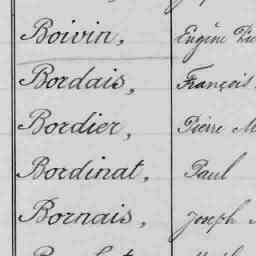 Boivin, Eugène
Bordais, François
Bordier, Pierre M
Bordinat, Paul
Bornais, Joseph